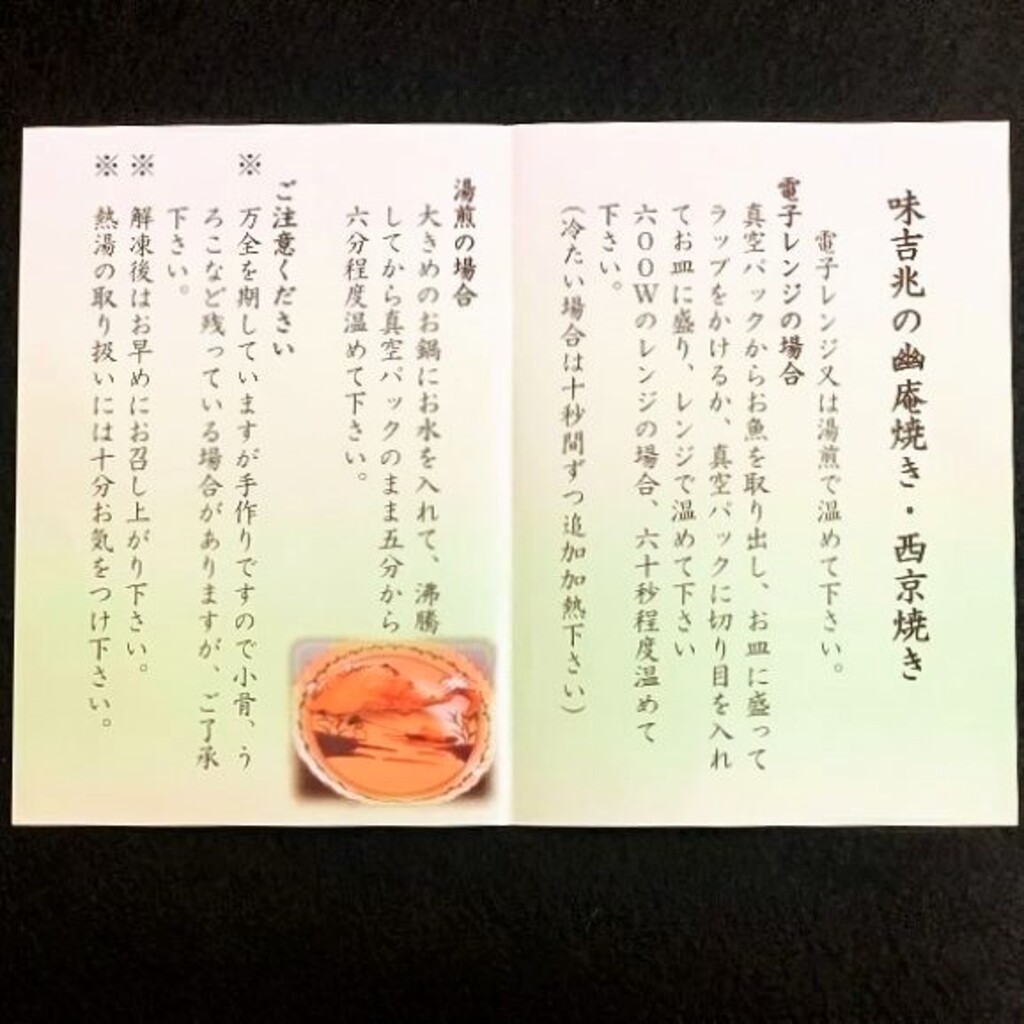 味吉兆の幽庵焼き・西京焼き
電子レンジ又は湯煎で温めて下さい。
電子レンジの場合
真空パックからお魚を取り出し、お皿に盛って
ラップをかけるか、真空パックに切り目を入れ
てお皿に盛り、レンジで温めて下さい
６００Ｗのレンジの場合、六十秒程度温めて
下さい。
（冷たい場合は十秒間ずつ追加加熱下さい）
湯煎の場合
大きめのお鍋にお水を入れて、沸騰
してから真空パックのまま五分から
六分程度温めて下さい。
ご注意ください
※ 万全を期していますが手作りですので小骨、う
ろこなど残っている場合がありますが、ご了承
下さい。
※ 解凍後はお早めにお召し上がり下さい。
※ 熱湯の取り扱いには十分お気をつけ下さい。